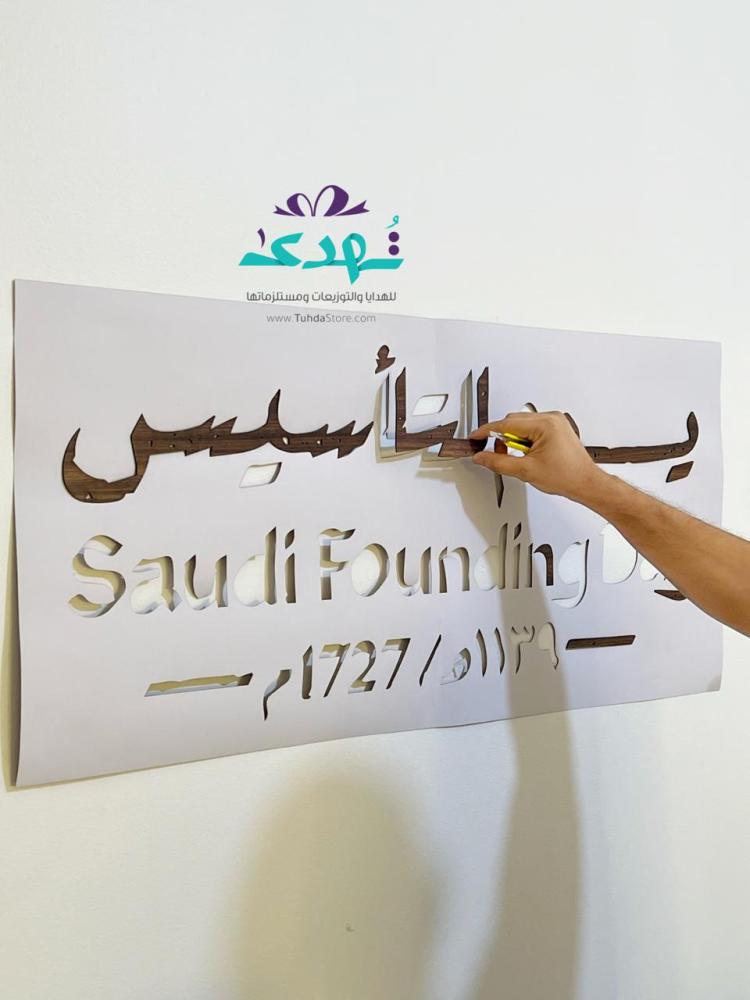 تُهدى
للهدايا والتوزيعات ومستلزماتها
www.TuhdaStore.com
يـوم التأسيس
Saudi Founding Day
١١٣٩هـ / 1727م